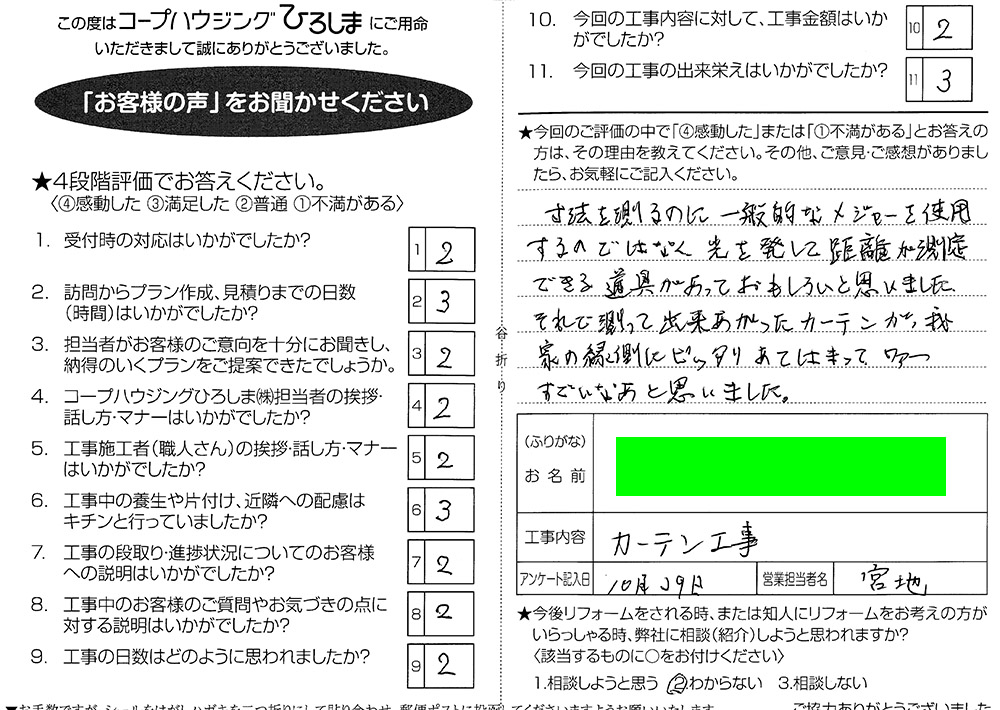 この度はコープハウジングひろしまにご用命
いただきまして誠にありがとうございました。
「お客様の声」をお聞かせください
★4段階評価でお答えください。
〈④感動した ③満足した ②普通 ①不満がある〉
1. 受付時の対応はいかがでしたか?
1 2
2. 訪問からプラン作成、見積りまでの日数
(時間)はいかがでしたか?
2 3
3. 担当者がお客様のご意向を十分にお聞きし、
納得のいくプランをご提案できたでしょうか。
3 2
4. コープハウジングひろしま㈱担当者の挨拶・
話し方・マナーはいかがでしたか?
4 2
5. 工事施工者(職人さん)の挨拶・話し方・マナー
はいかがでしたか?
5 2
6. 工事中の養生や片付け、近隣への配慮は
キチンと行っていましたか?
6 3
7. 工事の段取り・進捗状況についてのお客様
への説明はいかがでしたか?
7 2
8. 工事中のお客様のご質問やお気づきの点に
対する説明はいかがでしたか?
8 2
9. 工事の日数はどのように思われましたか?
9 2
▼お手数ですが、シールをはがしハガキを二つ折りにして貼り合わせ、郵便ポストに投函してくださいますようお願いいたします。
谷折り
10. 今回の工事内容に対して、工事金額はいか
がでしたか?
10 2
11. 今回の工事の出来栄えはいかがでしたか?
11 3
★今回のご評価の中で「④感動した」または「①不満がある」とお答えの
方は、その理由を教えてください。その他、ご意見・ご感想がありまし
たら、お気軽にご記入ください。
寸法を測るのに一般的なメジャーを使用
するのではなく光を発して距離が測定
できる道具があっておもしろいと思いました
それで測って出来あがったカーテンが、我
家の縁側にピッタリあてはまって、ワァー
すごいなあと思いました。
(ふりがな)
お名前
工事内容 カーテン工事
アンケート記入日 10月29日 営業担当者名 宮地
★今後リフォームをされる時、または知人にリフォームをお考えの方が
いらっしゃる時、弊社に相談(紹介)しようと思われますか?
〈該当するものに○をお付けください〉
1.相談しようと思う ②わからない 3.相談しない
ご協力ありがとうございました